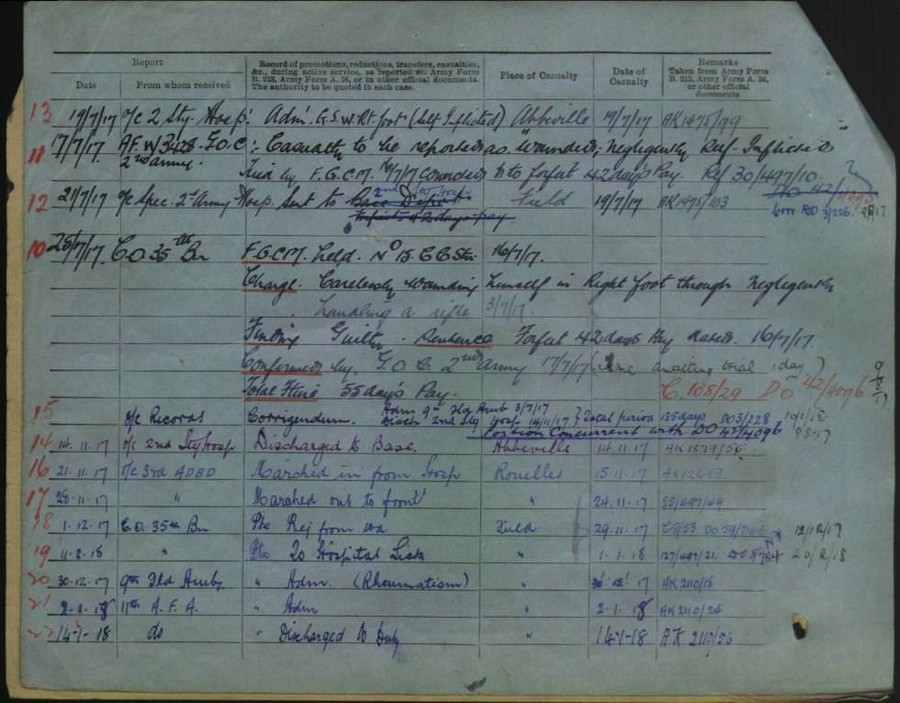 Report
Record of promotions, reductions, transfers, casualties, &c., during active service, as reported on Army Form B. 213, Army Form A. 36, or in other official documents. The authority to be quoted in each case.
Place of Casualty
Date of Casualty
Remarks
Taken from Army Form B. 213, Army Form A. 36, or other official documents
Date From whom received
13 19/7/17 O/c 2 Sty. Hosp: Adm. G.S.W. Rt. foot (Self Inflicted) Abbeville 19/7/17 AK1475/99
11 17/7/17 A.F.W. 3428. G.O.C: Casualty to be reported as "Wounded; Negligently Self Inflicted"
2nd Army. Tried by F.G.C.M. to forfeit 42 days Pay. Ref 30/497/10.
12 21/7/17 O/c Spec. 2nd Army Hosp. Sent to Field 19/7/17 AK1475/103
10 25/7/17 C.O 35th Bn F.G.C.M. held. No 15 C C Stn. 16/7/17.
Charge. Carelessly wounding himself in Right foot through Negligently
handling a rifle 3/7/17.
Finding Guilty. Sentence Forfeit 42 days Pay dated. 16/7/17.
Confirmed by G.O.C. 2nd Army 17/7/17 (Time awaiting trial 1 day)
Total Stine 55 day's Pay. C.168/29 DO 42/4096
15 O/c Records Corrigendum. Adm 9th Fld Amb 3/7/17
Disch 2nd Sty Hosp 14/11/17 } Total period 135 days DO3/228
Portion Concurrent with DO 42/4096
14 14.11.17 O/c 2nd Sty Hosp Discharged to Base. Abbeville 14.11.17
16 21.11.17 O/c 3rd ADBD Marched in from Hosp Rouelles 15.11.17
17 28.11.17 " Marched out to front " 24.11.17
18 1.12.17 C.O. 35th Bn Pte. Rej from wd Field 29.11.17 12/12/17
19 11.2.18 " Pte To Hospital Sick " 1.1.18 20/2/18
20 30.12.17 9th Fld Amb. " Adm. (Rheumatism) " 17 AK 2110/15
21 2.1.18 11th A.F.A. " Adm " 2.1.18 AK 2110/24
22 14-1-18 do " Discharged to Duty " 14-1-18 AK 2110/56